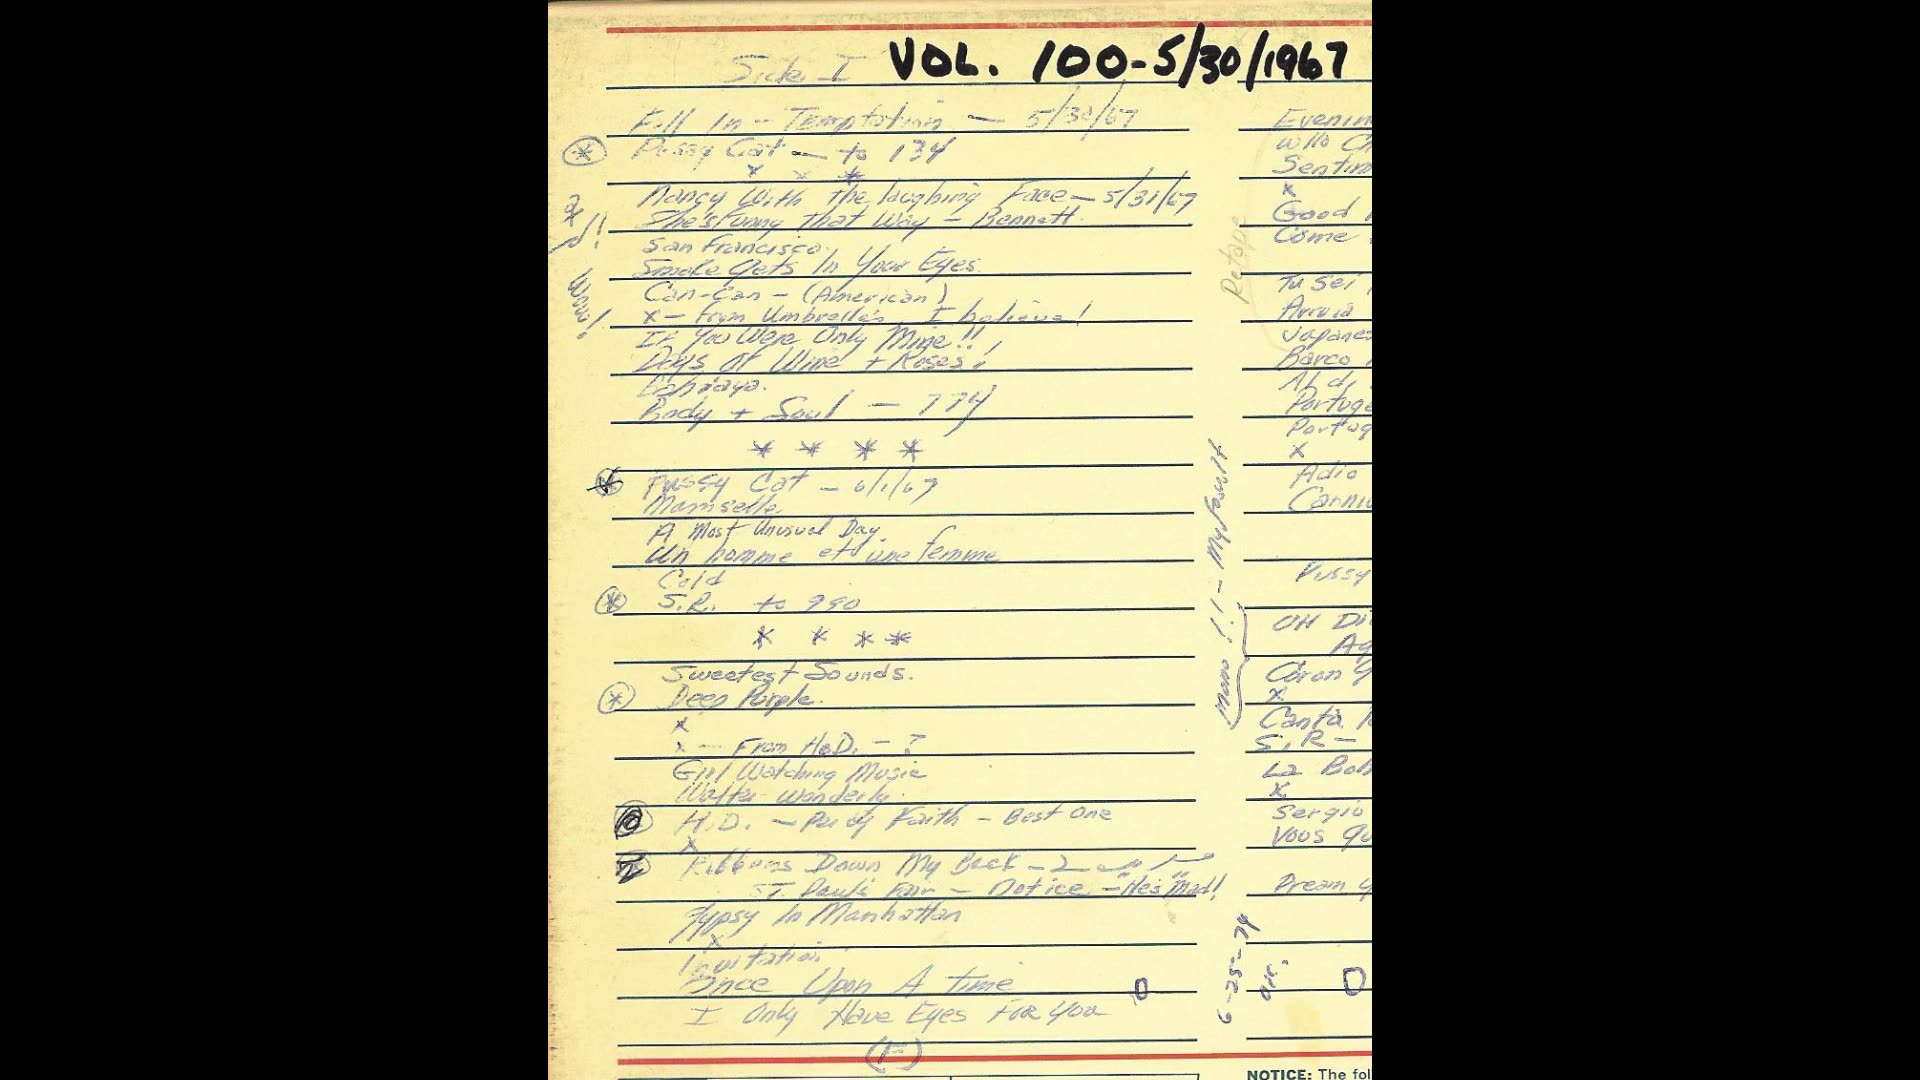 VOL. 100-5/30/1967
Side I
Fall In - Temptation - 5/30/67
Pussy Cat - to 134
x x *
Nancy With the laughing Face - 5/31/67
She's Funny that Way - Bennett.
San Francisco.
Smoke Gets In Your Eyes.
Can-Can - (American)
x - From Umbrella's I believe!
Wow!
If You Were Only Mine!!
Days of Wine + Roses!
Body + Soul - 774
* * * *
Pussy Cat - 6/1/67
Mamselle
A Most Unusual Day
Un homme et une femme
Cold
S.R. to 990
* * * *
Sweetest Sounds.
Deep Purple.
x
x - From H.D. - ?
Girl Watching Music
Walter Wanderly.
H.D. - Percy Faith - Best One
x
Ribbons Down My Back - 2
ST. Paul's Fair - Notice - "He's Mad"!
Gypsy In Manhattan
x
Invitation
Once Upon A time
I Only Have Eyes For You
(F)
Retape
Mano!! - My Fault
6-25-74
Evenin
Who Ch
Sentim
x
Good
Come
Tu Sei
Japanes
Barco
Portuge
Portug
x
Adio
Carniv
Pussy
OH Di
Ag
x
Canta
S.R -
La Bob
x
Sergio
Vous qu
Dream y
NOTICE: The fol